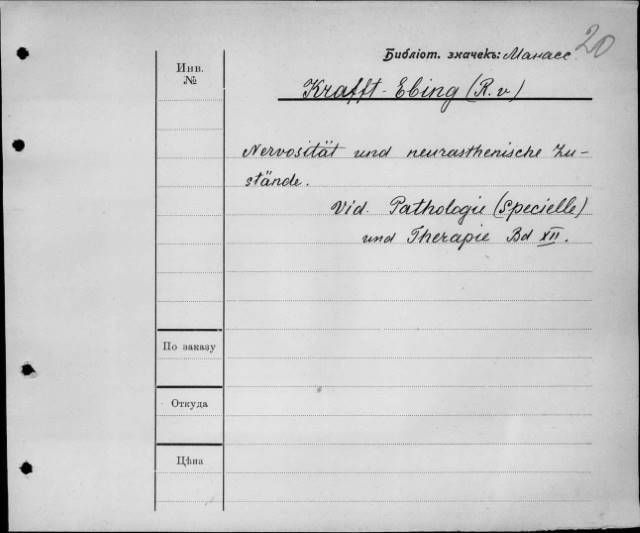 20
Библіот. значекъ: Манасс.
Инв.
№
Krafft-Ebing (R. v)
Nervosität und neurasthenische Zu-
stände.
Vid. Pathologie (Specielle)
und Therapie Bd XII.
По заказу
Откуда
Цѣна